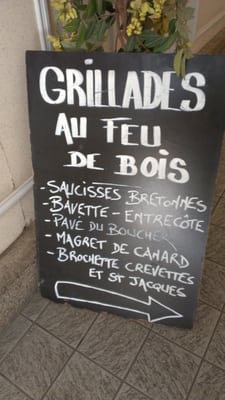 GRILLADES
AU FEU
DE BOIS
- SAUCISSES BRETONNES
- BAVETTE - ENTRECÔTE
- PAVÉ DU BOUCHER
- MAGRET DE CANARD
- BROCHETTE CREVETTES
ET ST JACQUES